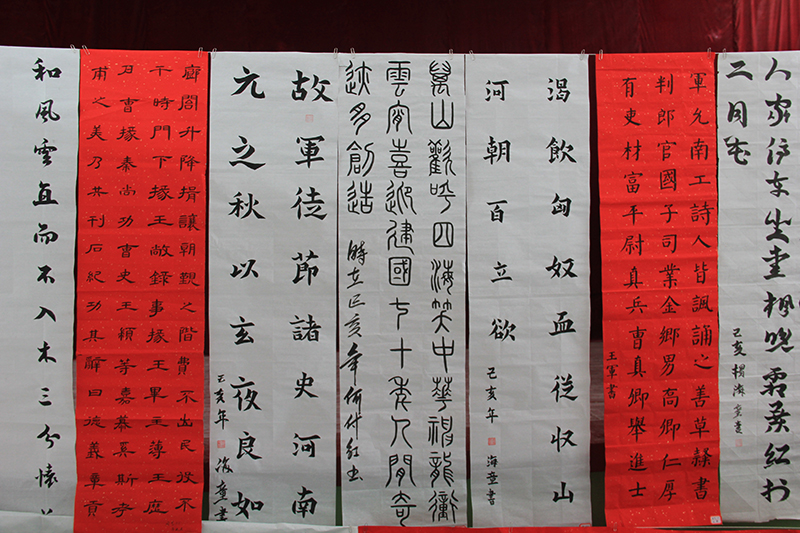 人家停车坐爱枫晚霜葉红於
二月花
己亥
軍允南工詩人皆諷誦之善草隸書
判郎官國子司業金鄉男高卿仁厚
有吏材富平尉真兵曹真卿舉進士
王軍書
渴飲匈奴血從收山
河朝百立欲
己亥年 海童書
萬山歡呼四海笑中華龍衝
雲霄喜迎建國七十年人間奇
跡多創造
時在己亥年
故軍徒節諸史河南
元之秋以玄夜良如
己亥年
廊閣升降揖讓朝覲之階費不出民役不
干時門下掾王敞錄事掾王畢主簿王歷
戶曹掾秦尚功曹史王顓等嘉慕奚斯考
甫之美乃共刊石紀功其辭曰德義章貢
和風雲直而不入木三分懷